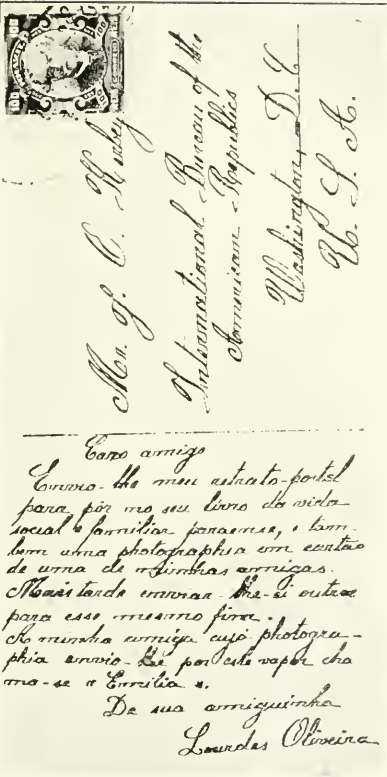 Mr. J. C. Kerbey
International Bureau of the
American Republics
Washington, D. C.
U. S. A.
Caro amigo
Envio-lhe meu retrato-postal
para pôr no seu livro da vida
social e familiar paraense, e tam-
bem uma photographia em cartão
de uma de minhas amigas.
Mais tarde enviar-lhe-ei outros
para esse mesmo fim.
A minha amiga cujo photogra-
phia envio-lhe por este vapor cha
ma-se « Emilia ».
De sua amiguinha
Lourdes Oliveira